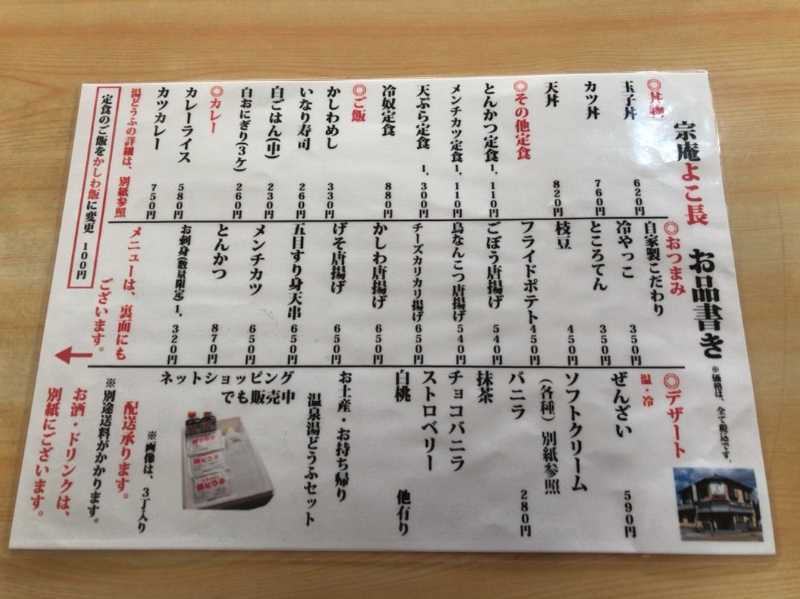 宗庵よこ長 お品書き
※価格は、全て税込です。
◎丼物
玉子丼 620円
カツ丼 760円
天丼 820円
◎その他定食
とんかつ定食 1,110円
メンチカツ定食 1,110円
天ぷら定食 1,300円
冷奴定食 880円
◎ご飯
かしわめし 330円
いなり寿司 260円
白ごはん(中) 230円
白おにぎり(3ケ) 260円
◎カレー
カレーライス 580円
カツカレー 750円
湯どうふの詳細は、別紙参照
定食のご飯をかしわ飯に変更 100円
◎おつまみ
自家製こだわり
冷やっこ 350円
ところてん 350円
枝豆 450円
フライドポテト 450円
ごぼう唐揚げ 540円
鳥なんこつ唐揚げ 540円
チーズカリカリ揚げ 650円
かしわ唐揚げ 650円
げそ唐揚げ 650円
五目すり身天串 650円
メンチカツ 650円
とんかつ 870円
お刺身(数量限定) 1,320円
メニューは、裏面にも
ございます。
◎デザート
温・冷
ぜんざい 590円
ソフトクリーム
(各種)別紙参照
バニラ 280円
抹茶
チョコバニラ
ストロベリー
白桃 他有り
お土産・お持ち帰り
温泉湯どうふセット
ネットショッピング
でも販売中
※画像は、3丁入り
配送承ります。
※別途送料がかかります。
お酒・ドリンクは、
別紙にございます。